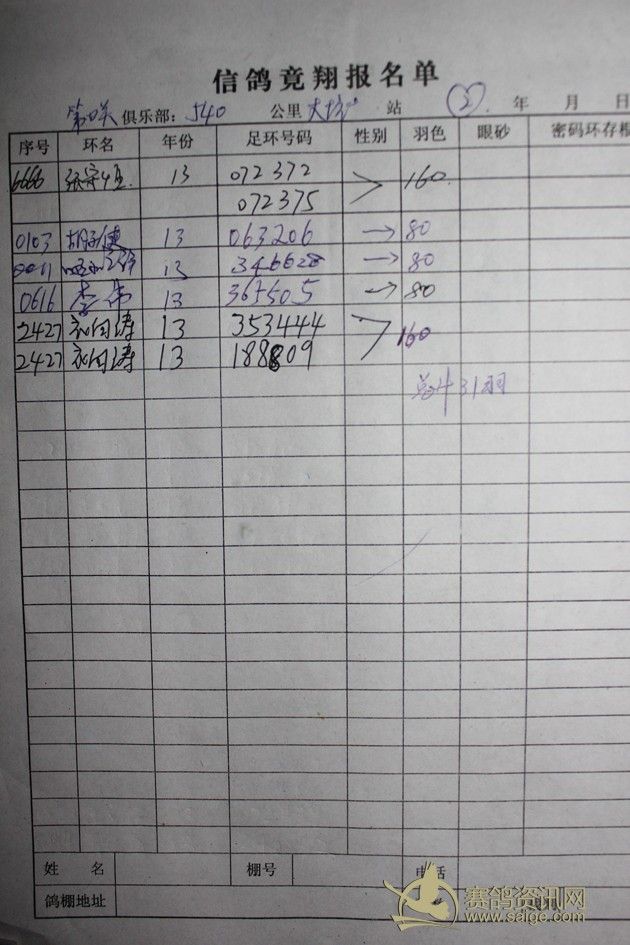 信鸽竞翔报名单
第 关 俱乐部: 540 公里 大 站 ② 年 月 日
序号 环名 年份 足环号码 性别 羽色 眼砂 密码环存根
6666 张守 13 072372 160
072375
0103 胡 13 063206 → 80
13 346628 → 80
0616 李伟 13 365505 → 80
2427 祁国涛 13 353444 160
2427 祁国涛 13 188809
总计31羽
姓 名 棚号 电话
鸽棚地址
赛鸽资讯网
www.saige.com